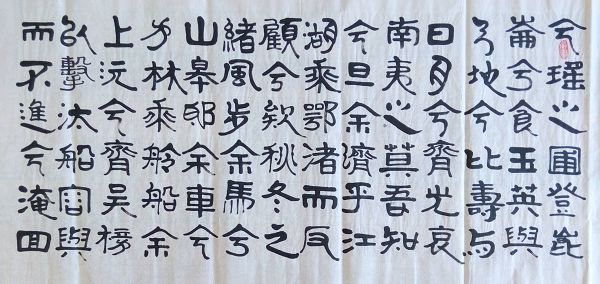 兮瑤之圃登崑
崙兮食玉英與
天地兮比壽与
日月兮齊光哀
南夷之莫吾知
兮旦余濟乎江
湖乘鄂渚而反
顧兮欸秋冬之
緒風步余馬兮
山皋邸余車兮
方林乘舲船余
上沅兮齊吳榜
以擊汰船容與
而不進兮淹回